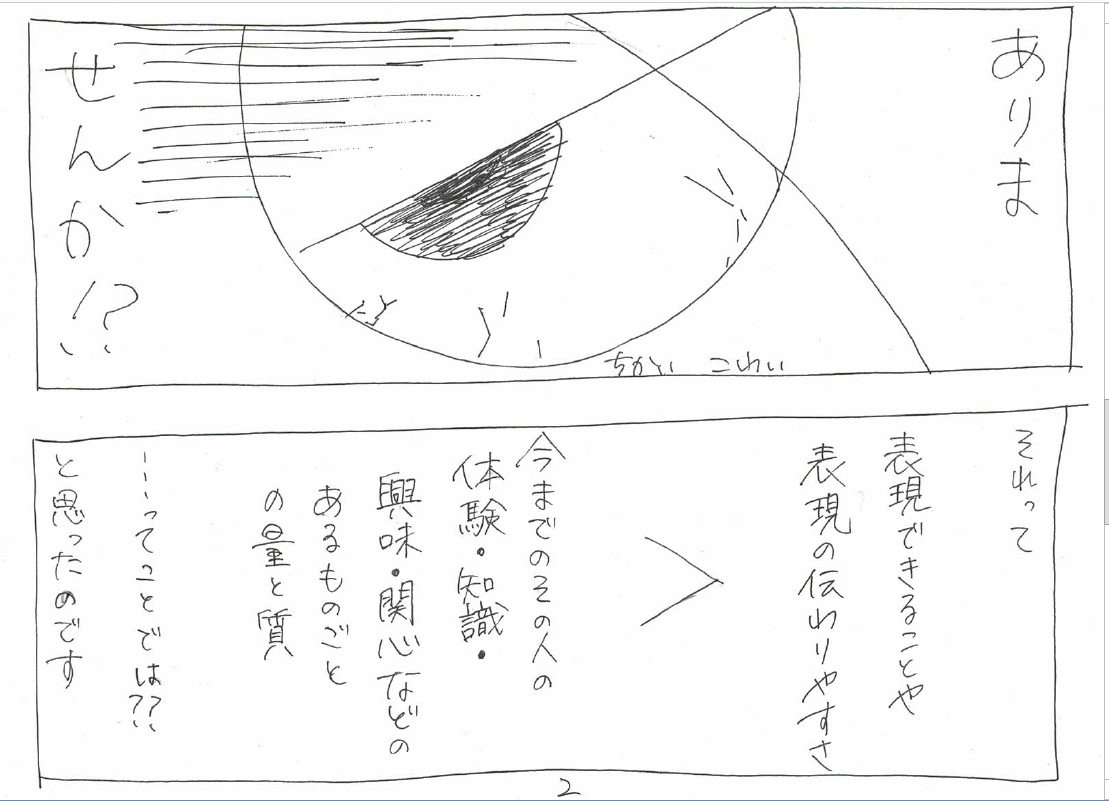 ありま
せんか!?
ちかい こわい
それって
表現できることや
表現の伝わりやすさ
>
今までのその人の
体験・知識・
興味・関心などの
あるものごと
の量と質
……ってことでは??
と思ったのです
2